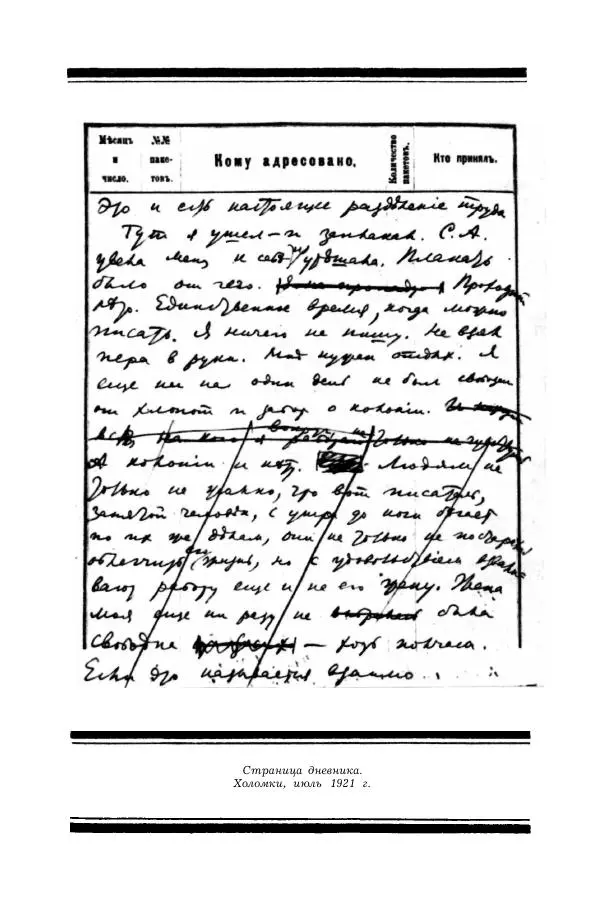 Мѣсяцъ и число.
№№ паке-товъ.
Кому адресовано.
Количество пакетовъ.
Кто принялъ.
Это и есть настоящее разделение труда
Тут я ушел — и заплакал. С. А.
увела меня и
было от чего. Проходит
лето. Единственное время, когда можно
писать. Я ничего не пишу. Не взял
пера в руки. Мне нужен отдых. Я
еще ни на один день не был свободен
от хлопот и забот о колонии.
А колонии и нет. Людям не
только не важно, что вот писатель,
человек, с утра до ночи бегает
по их же делам, они не только не
облегчить жизнь, но с удовольствием
работу еще и на его жену. Жена
моя еще ни разу не была
свободна — хоть полчаса.
Если это называется
Страница дневника.
Холомки, июль 1921 г.